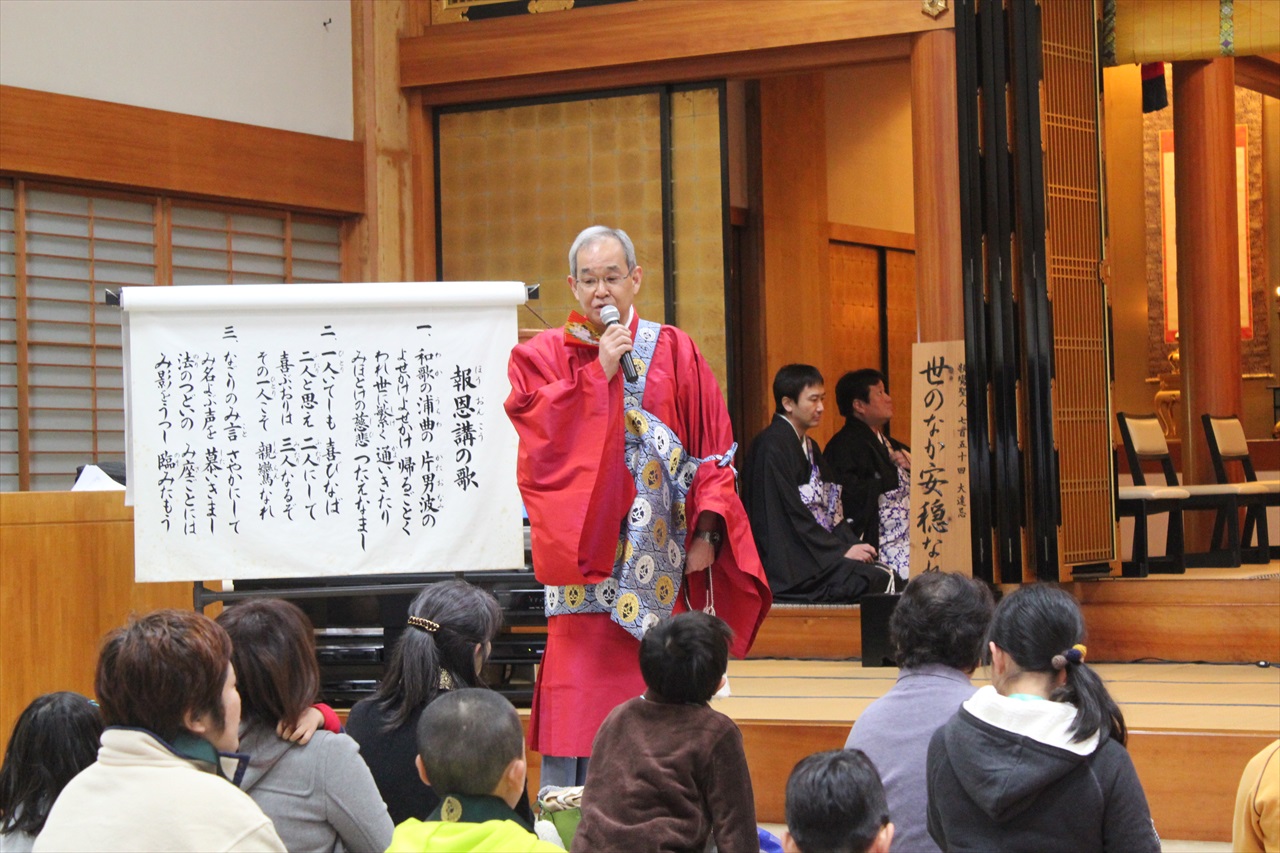 報恩講の歌
ほうおんこう
一、和歌の浦曲の 片男波の
わか うらわ かたおなみ
よせかけよせかけ 帰るごとく
われ世に繁く 通いきたり
みほとけの慈悲 つたえなまし
二、一人いてしも 喜びなば
二人と思え 二人にして
喜ぶおりは 三人なるぞ
その一人こそ 親鸞なれ
三、なごりのみ言 さやかにして
み名よぶ声を 慕いきまし
法のつどいの み座ごとには
み影をうつし 臨みたもう
親鸞聖人 七百五十回 大遠忌
世のなか安穏なれ